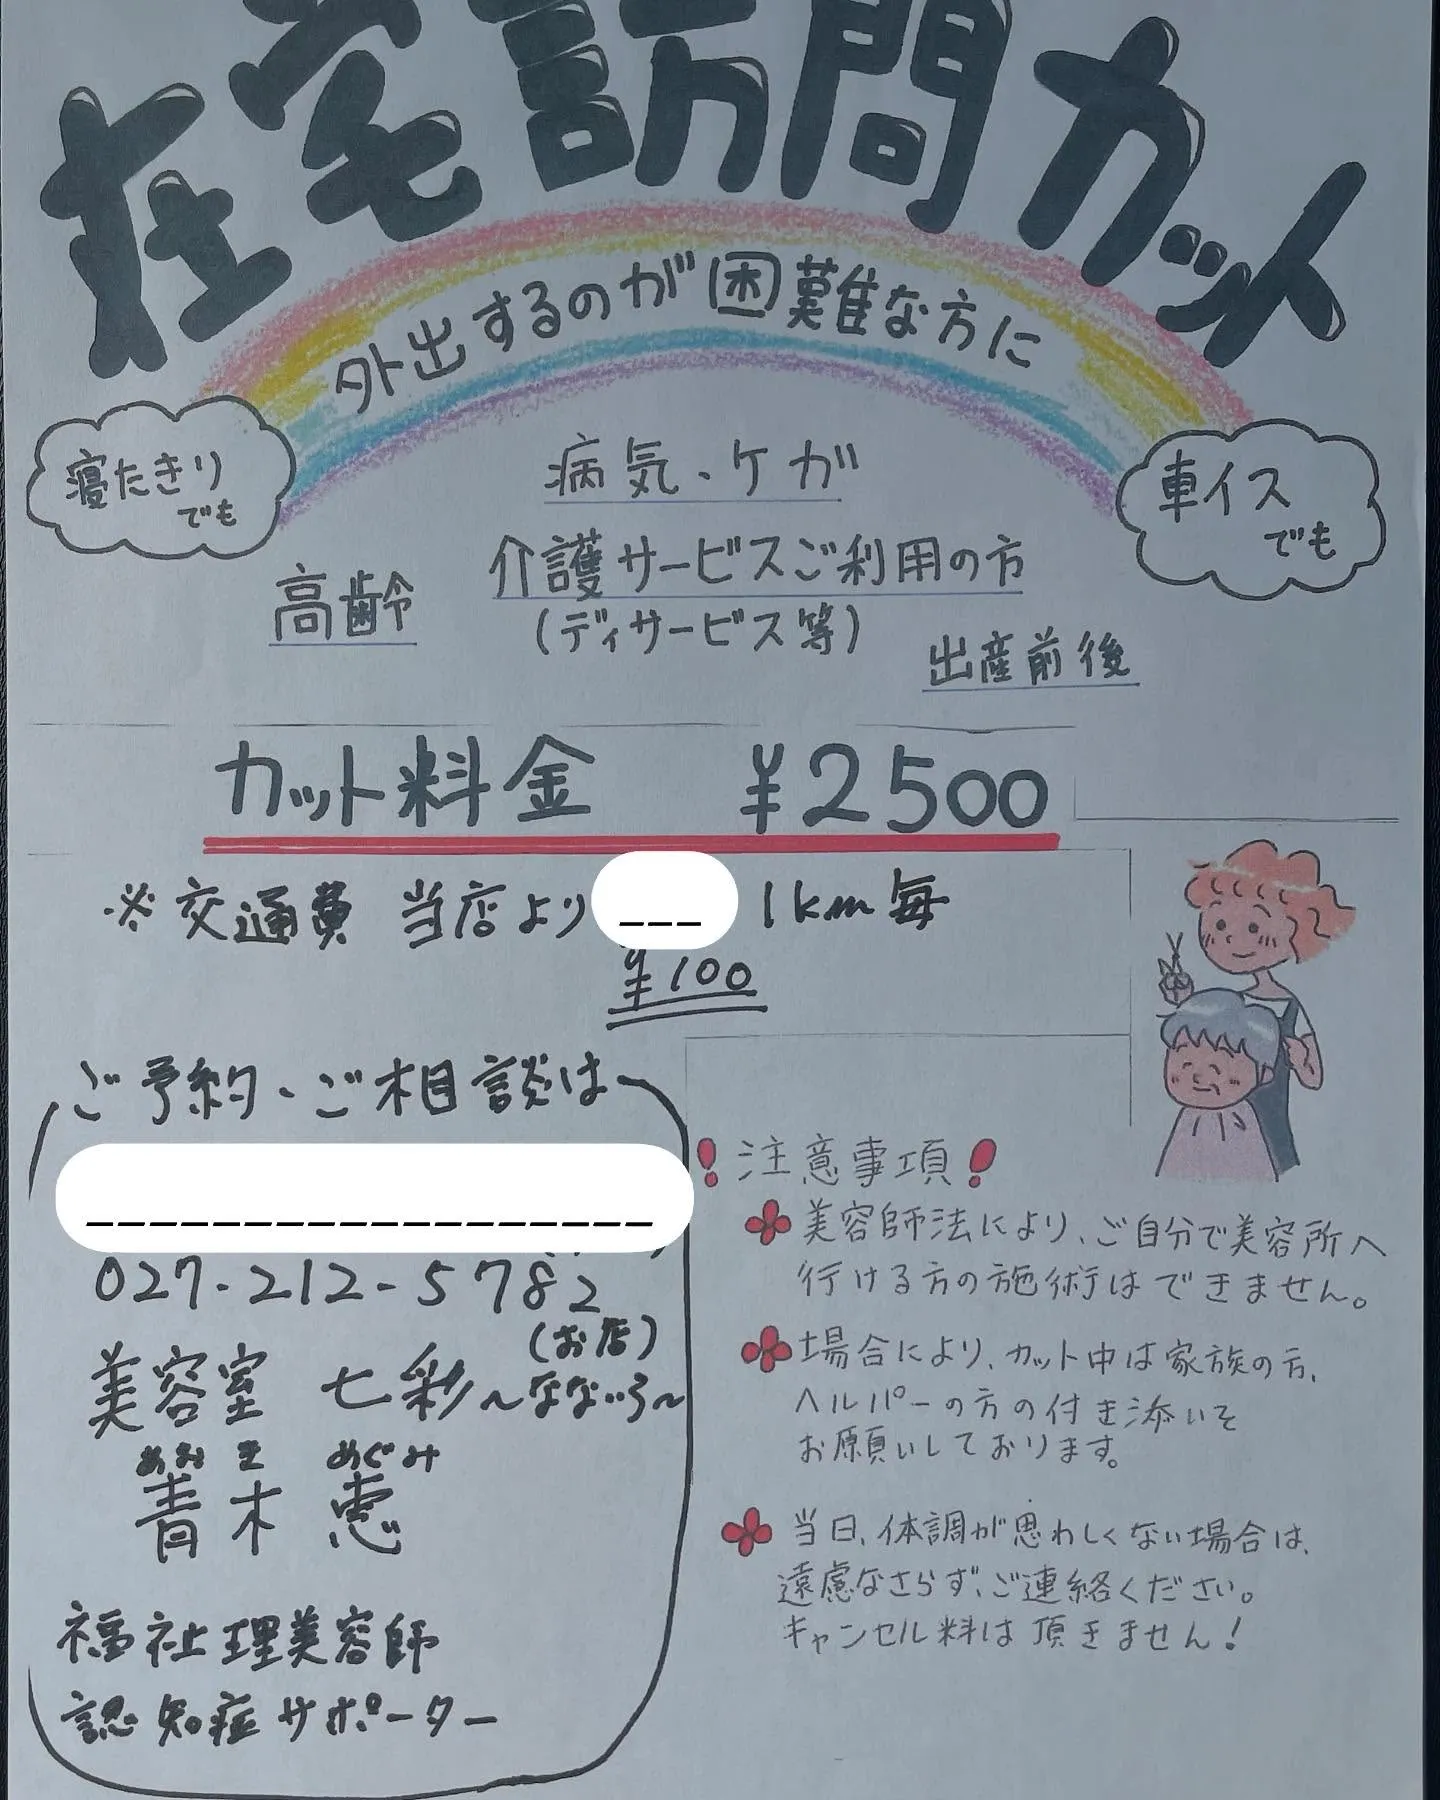 在宅訪問カット
外出するのが困難な方に
寝たきり
でも
車イス
でも
病気、ケガ
介護サービスご利用の方
(ディサービス等)
高齢
出産前後
カット料金 ¥2500
※交通費 当店より ___ 1km毎
¥100
ご予約、ご相談は
027-212-5782
(お店)
美容室 七彩〜なないろ〜
あおき めぐみ
青木 恵
福祉理美容師
認知症サポーター
!注意事項!
美容師法により、ご自分で美容所へ
行ける方の施術はできません。
場合により、カット中は家族の方、
ヘルパーの方の付き添いを
お願いしております。
当日、体調が思わしくない場合は、
遠慮なさらず、ご連絡ください。
キャンセル料は頂きません!